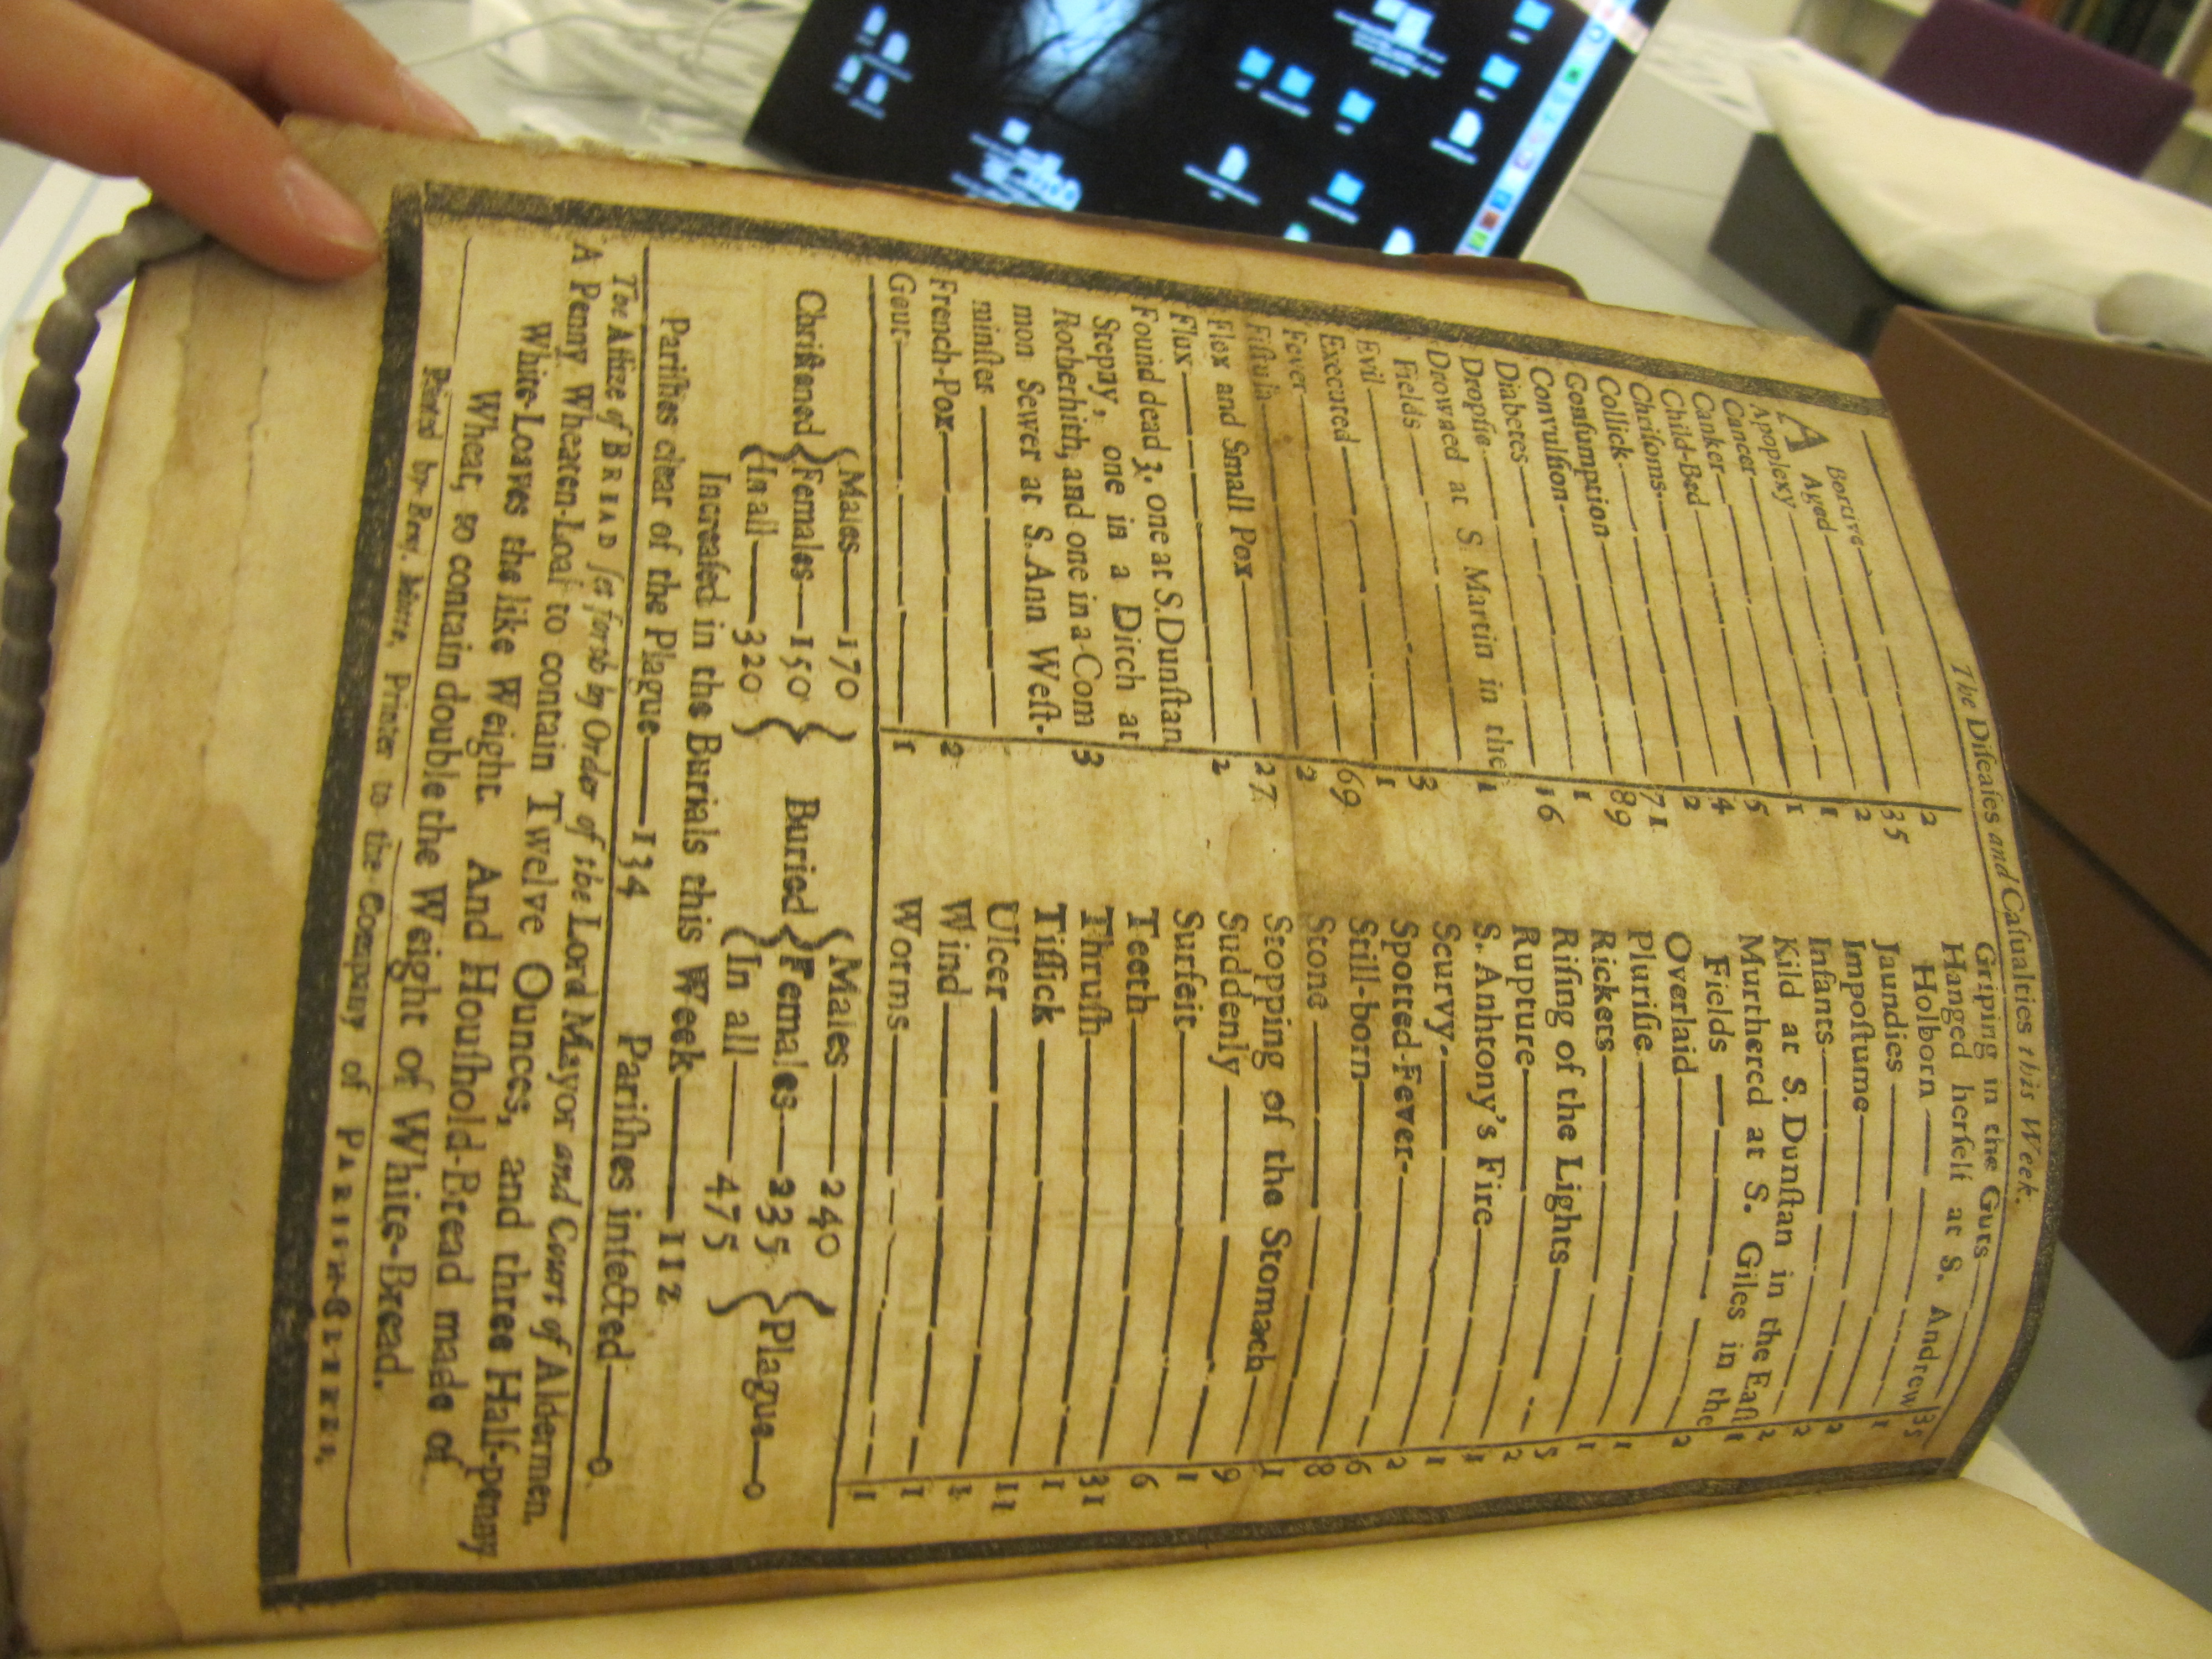 The Diſeaſes and Caſualties this Week.
Abortive 2
Aged 35
Apoplexy 2
Cancer 1
Canker 1
Child-Bed 5
Chriſoms 4
Collick 2
Conſumption 71
Convulſion 89
Diabetes 1
Dropſie 16
Drowned at S. Martin in the
Fields 1
Evil 3
Executed 1
Fever 69
Fiſtula 2
Flox and Small Pox 27
Flux 2
Found dead 3, one at S. Dunſtan
Stepny, one in a Ditch at
Rotherhith, and one in a Com
mon Sewer at S. Ann Weſt-
minſter 3
French-Pox 2
Gout 1
Griping in the Guts 35
Hanged herſelf at S. Andrew
Holborn 1
Jaundies 2
Impoſtume 2
Infants 2
Kild at S. Dunſtan in the Eaſt 1
Murthered at S. Giles in the
Fields 2
Overlaid 1
Pluriſie 1
Rickets 5
Riſing of the Lights 2
Rupture 1
S. Anhtony's Fire 1
Scurvy 2
Spotted-Fever 6
Still-born 8
Stone 1
Stopping of the Stomach 9
Suddenly 1
Surfeit 6
Teeth 31
Thruſh 1
Tiſſick 11
Ulcer
Wind 1
Worms 1
Chriſtned { Males 170 Females 150 In all 320 }
Buried { Males 240 Females 235 In all 475 } Plague 0
Increaſed in the Burials this Week 112
Pariſhes clear of the Plague 134 Pariſhes infected 0
The Aſſize of BREAD ſet forth by Order of the Lord Mayor and Court of Aldermen.
A Penny Wheaten-Loaf to contain Twelve Ounces, and three Half-penny
White-Loaves the like Weight. And Houſhold-Bread made of
Wheat, to contain double the Weight of White-Bread.
Printed by Benj. Motte, Printer to the Company of PARISH-CLERKS.